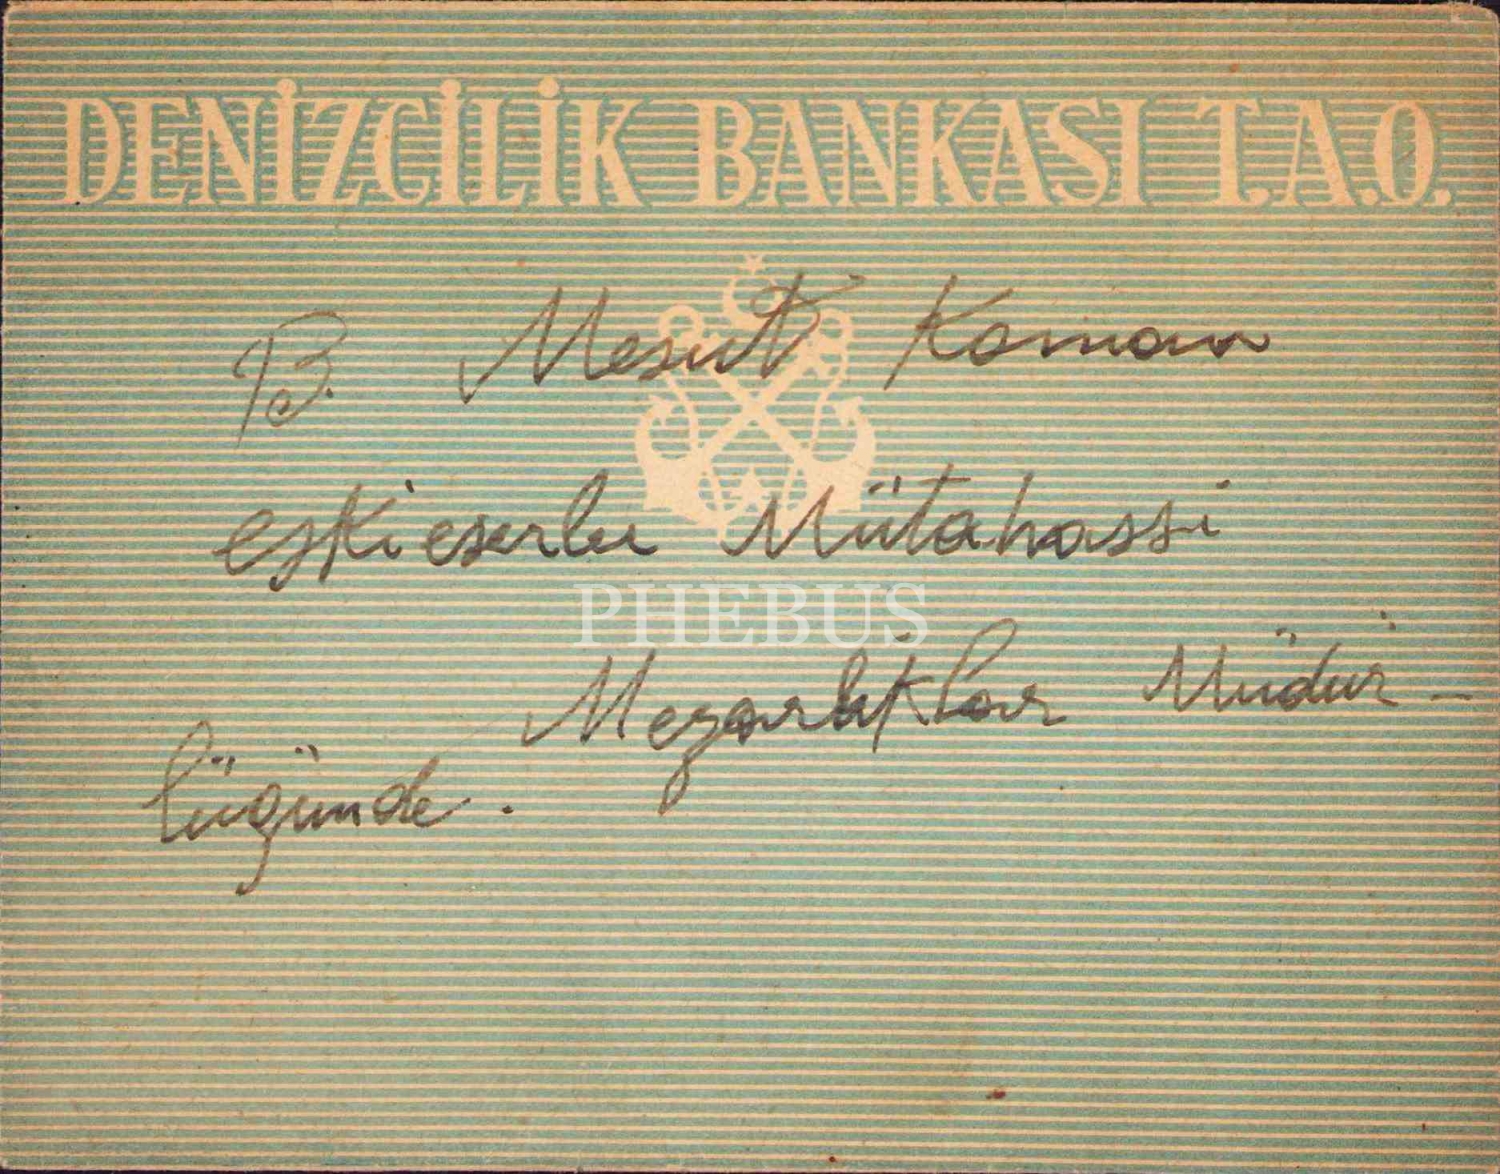 DENİZCİLİK BANKASI T.A.O.
B. Mesut Koman
eskieserler Mütahassi
PHEBUS
Mezarlıklar Müdür-
lüğünde.